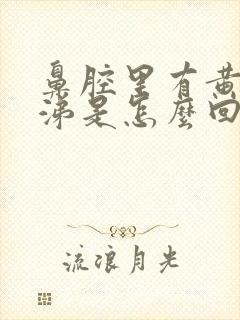 鼻腔里有黄
涕是怎麼回
流浪月光